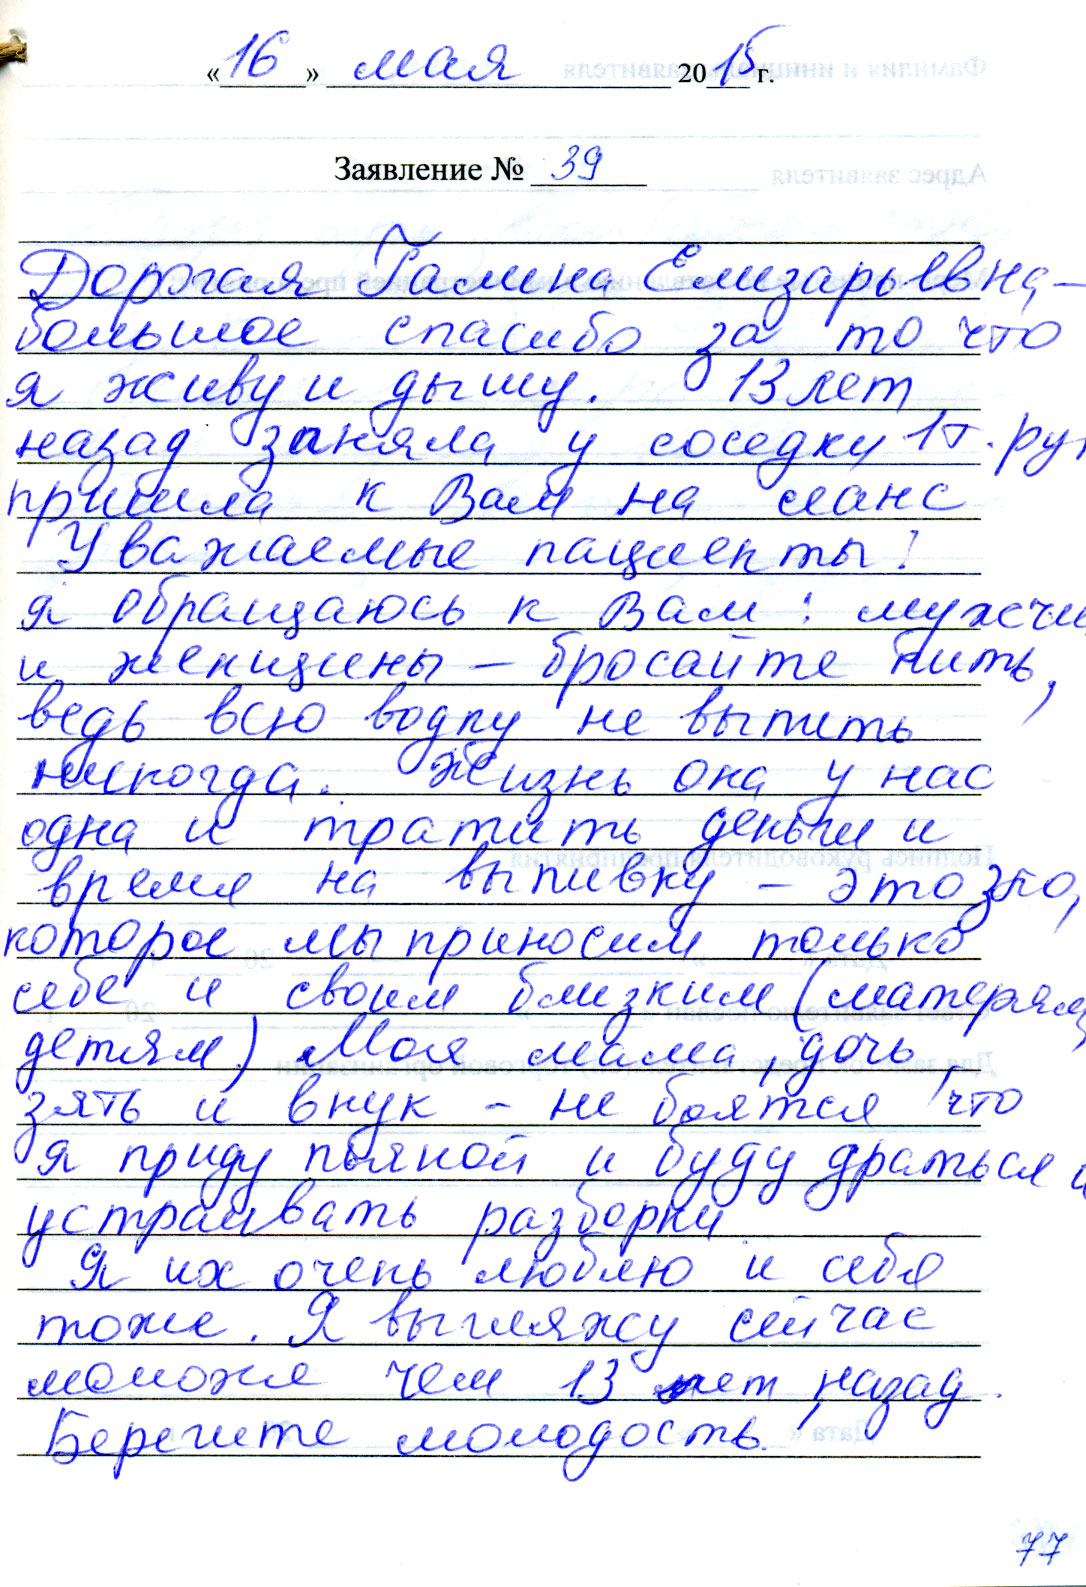 «16» мая 2015 г.
Заявление № 39
Дорогая Галина Елизарьевна —
большое спасибо за то что
я живу и дышу. 13 лет
назад заняла у соседку 1т. руб
пришла к Вам на сеанс
Уважаемые пациенты!
я обращаюсь к Вам: мужчи
и женщины — бросайте пить,
ведь всю водку не выпить
никогда. Жизнь она у нас
одна и тратить деньги и
время на выпивку – это зло,
которое мы приносим только
себе и своим близким (матерям,
детям) Моя мама, дочь,
зять и внук – не боятся что
я приду пьяной и буду драться и
устраивать разборки
Я их очень люблю и себя
тоже. Я выгляжу сейчас
моложе чем 13 лет назад.
Берегите молодость!
77